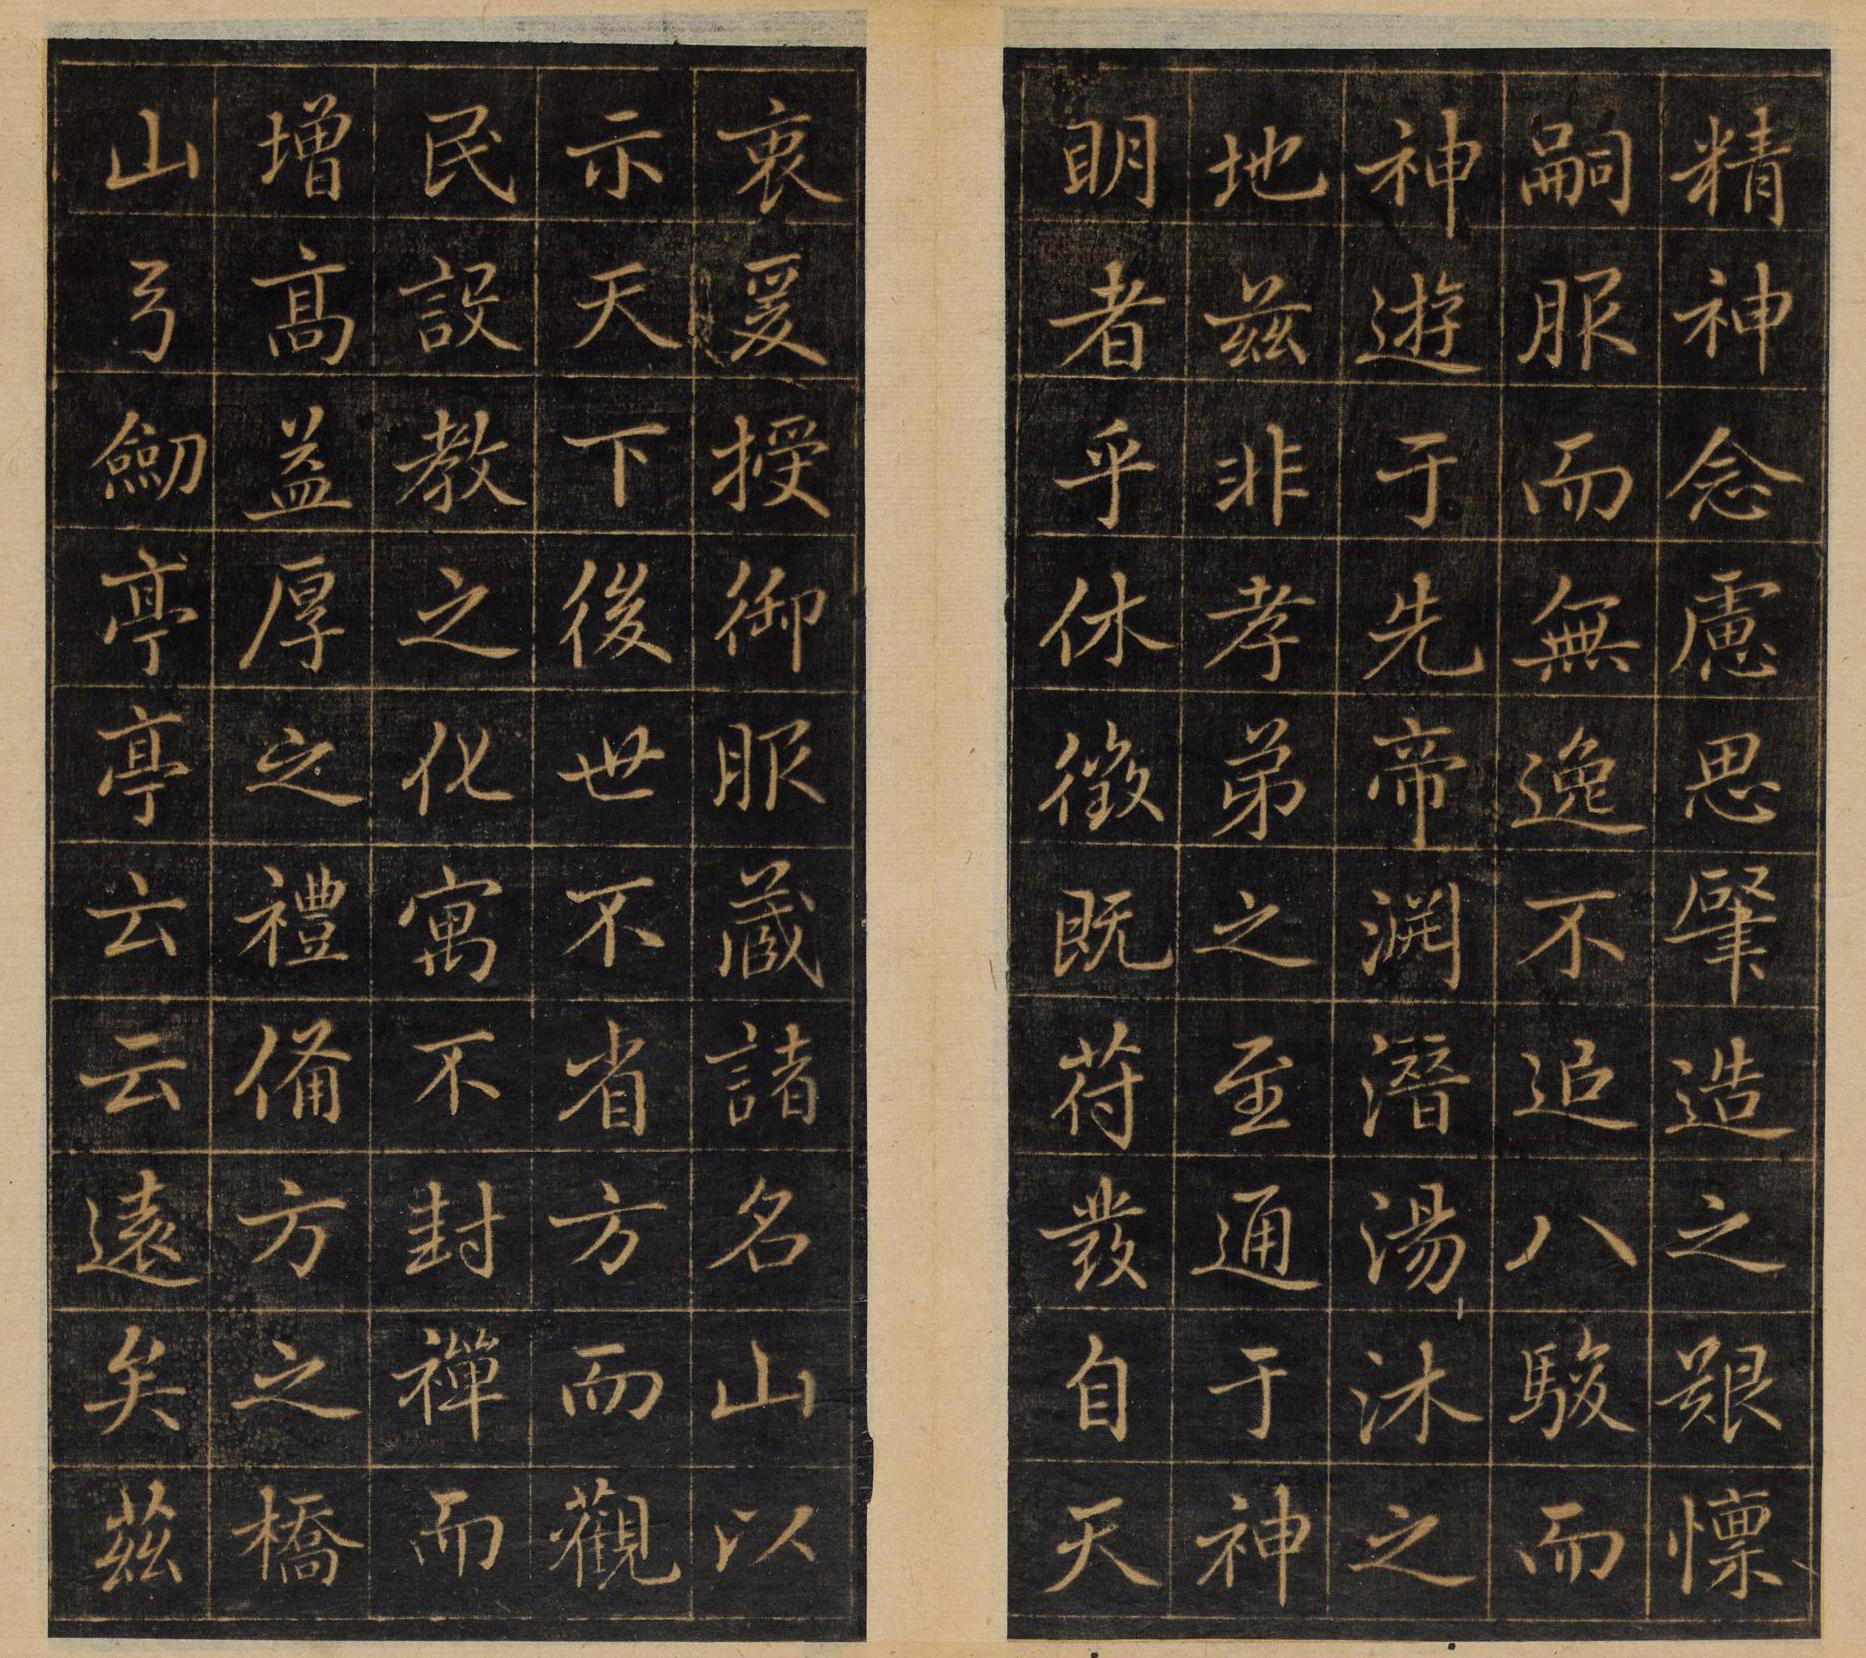 精神念慮思肇造之艱懍
嗣服而無逸不追八駿而
神遊于先帝渊潛湯沐之
地兹非孝弟之至通于神
眀者乎休徵既苻發自天
衷爰授御服藏諸名山以
示天下後世不省方而觀
民設教之化寓不封禪而
增高益厚之禮備方之橋
山弓劒亭亭云云遠矣茲